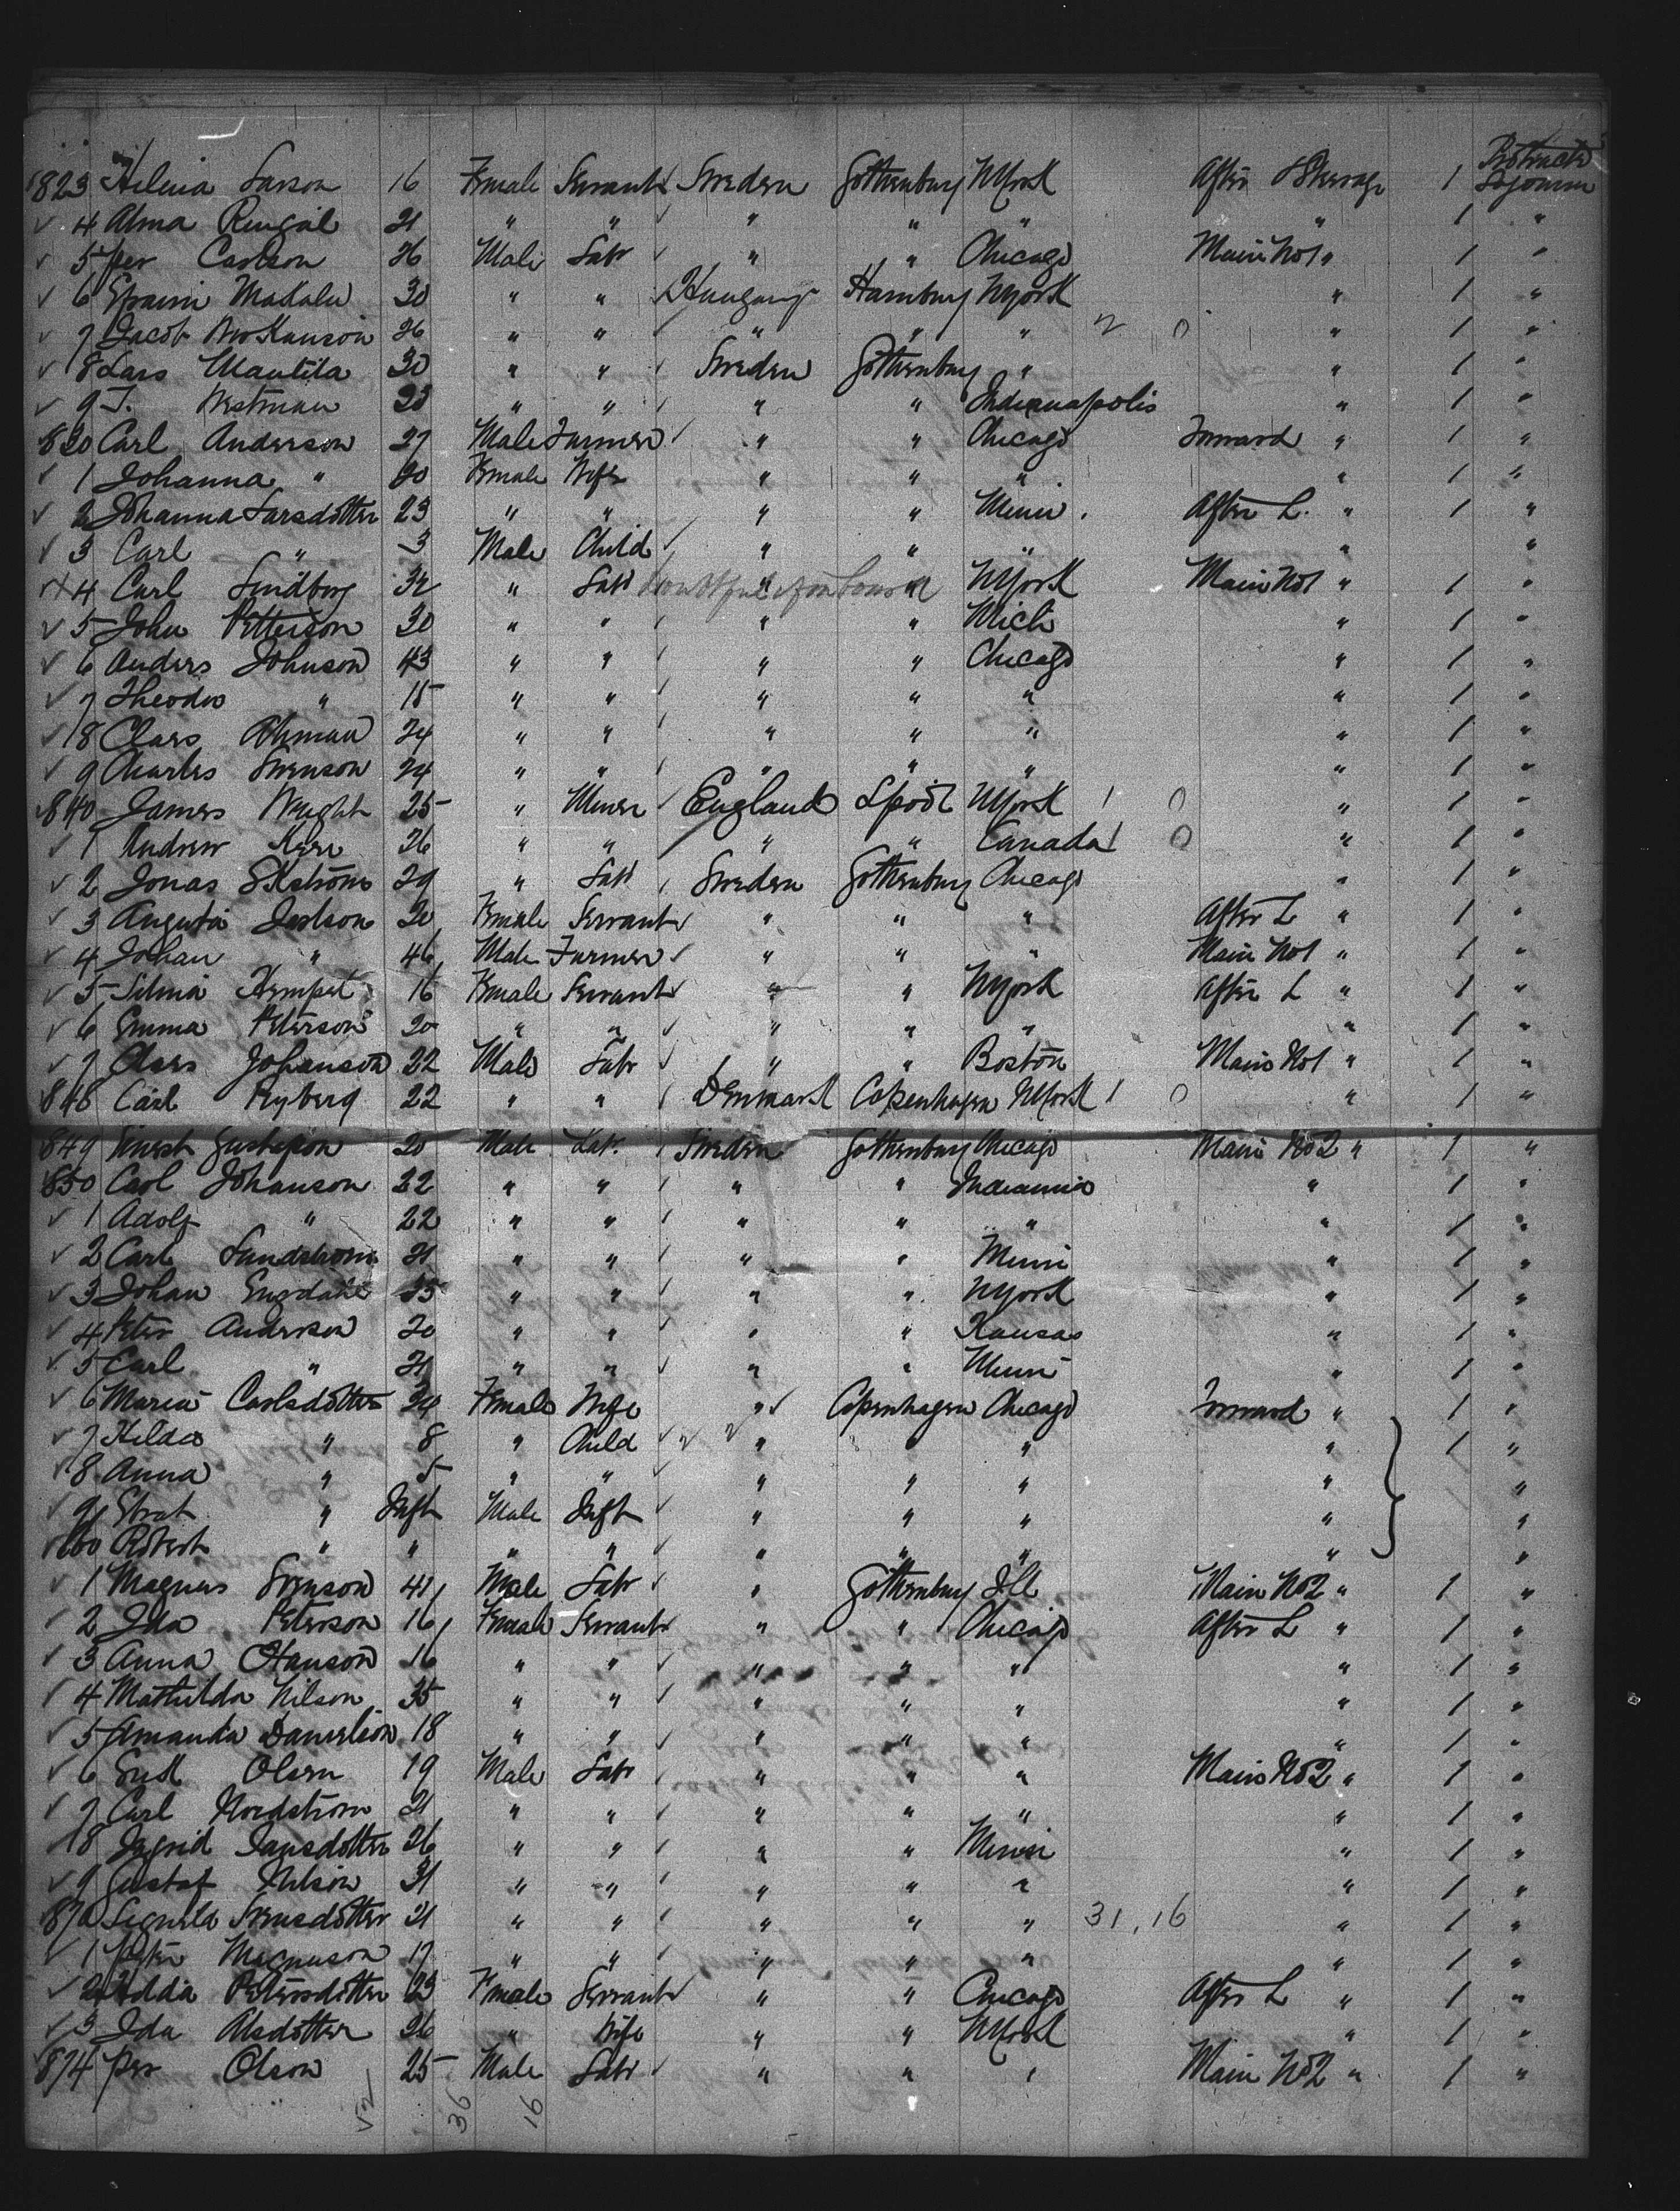 Protracted
823 Helma Larson 16 Female Servant Sweden Gothenburg NYork After Steerage 1 Sojourn
4 Alma 21 " " " " " " 1 "
5 Per Carlson 26 Male Labr " " Chicago Main No1 " 1 "
6 30 " " Hungary Hamburg NYork " 1 "
7 Jacob 26 " " " " " 2 0 " 1 "
8 Lars Mantila 30 " " Sweden Gothenburg " " 1 "
9 J. Westman 23 " " " " Indianapolis " 1 "
830 Carl Anderson 27 Male Farmer " " Chicago Forward " 1 "
1 Johanna " 20 Female Wife " " " " 1 "
2 Johanna Larsdotter 23 " " " " Minn. After L. " 1 "
3 Carl " 3 Male Child " " " " "
4 Carl Lindborg 32 " Labr " " NYork Main No1 " 1 "
5 John Petterson 30 " " " " Mich " 1 "
6 Anders Johnson 43 " " " " Chicago " 1 "
7 Theodor " 15 " " " " " " 1 "
8 Claes Ahman 24 " " " " " " 1 "
9 Charles Swenson 24 " " " " " " 1 "
840 James Wright 25 " Miner England Lpool NYork 1 0 " 1 "
1 Andrew Kerr 26 " " " " Canada 1 0 " 1 "
2 Jonas Ekstrom 29 " Labr Sweden Gothenburg Chicago " 1 "
3 Augusta 20 Female Servant " " " After L " 1 "
4 Johan " 46 Male Farmer " " " Main No1 " 1 "
5 Selma 16 Female Servant " " NYork After L " 1 "
6 Emma Peterson 20 " " " " " " 1 "
7 Claes Johanson 22 Male Labr " " Boston Main No1 " 1 "
848 Carl Ryberg 22 " " Denmark Copenhagen NYork 1 0 " 1 "
849 Ernst Gustafson 20 Male Labr. Sweden Gothenburg Chicago Main No2 " 1 "
850 Carl Johanson 22 " " " " Indianna " 1 "
1 Adolf " 22 " " " " " " 1 "
2 Carl Sundstrom 21 " " " " Minn " 1 "
3 Johan Engdahl 35 " " " " NYork " 1 "
4 Peter Anderson 20 " " " " Kansas " 1 "
5 Carl " 21 " " " " Minn " 1 "
6 Maria Carlsdotter 34 Female Wife " Copenhagen Chicago Forward " 1 "
7 Hilda " 8 " Child " " " " 1 "
8 Anna " 5 " " " " " " "
9 " Inft Male Inft " " " " "
860 Robert " " " " " " " " "
1 Magnus Svenson 41 Male Labr " Gothenburg Ill Main No2 " 1 "
2 Ida Peterson 16 Female Servant " " Chicago After L " 1 "
3 Anna Hanson 16 " " " " " " 1 "
4 Mathilda Nilson 35 " " " " " " 1 "
5 Amanda Danielson 18 " " " " " " 1 "
6 Olsen 19 Male Labr " " " Main No2 " 1 "
7 Carl Nordstrom 21 " " " " " " 1 "
8 Ingrid Jansdotter 26 " " " " Minn " 1 "
9 Gustaf Nilson 31 " " " " " " 1 "
870 Svensdotter 21 " " " " " 31.16 " 1 "
1 Peter Magnuson 17 " " " " " " 1 "
2 Hedda Petersdotter 23 Female Servant " " Chicago After L " 1 "
3 Ida Alsdotter 26 " Wife " " NYork " 1 "
874 Per Olson 25 Male Labr " " " Main No2 " 1 "
52 36 16